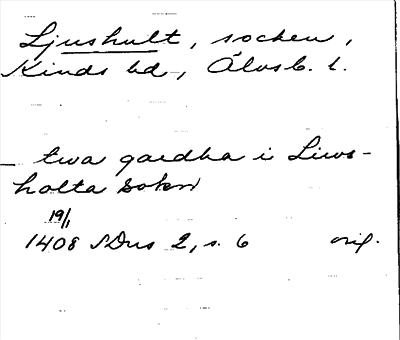 Ljushult, socken,
Kinds hd, Älvsb. l.
— twa gardha i Liws-
holta sokn
19/1
1408 SDns 2, s. 6 orig.